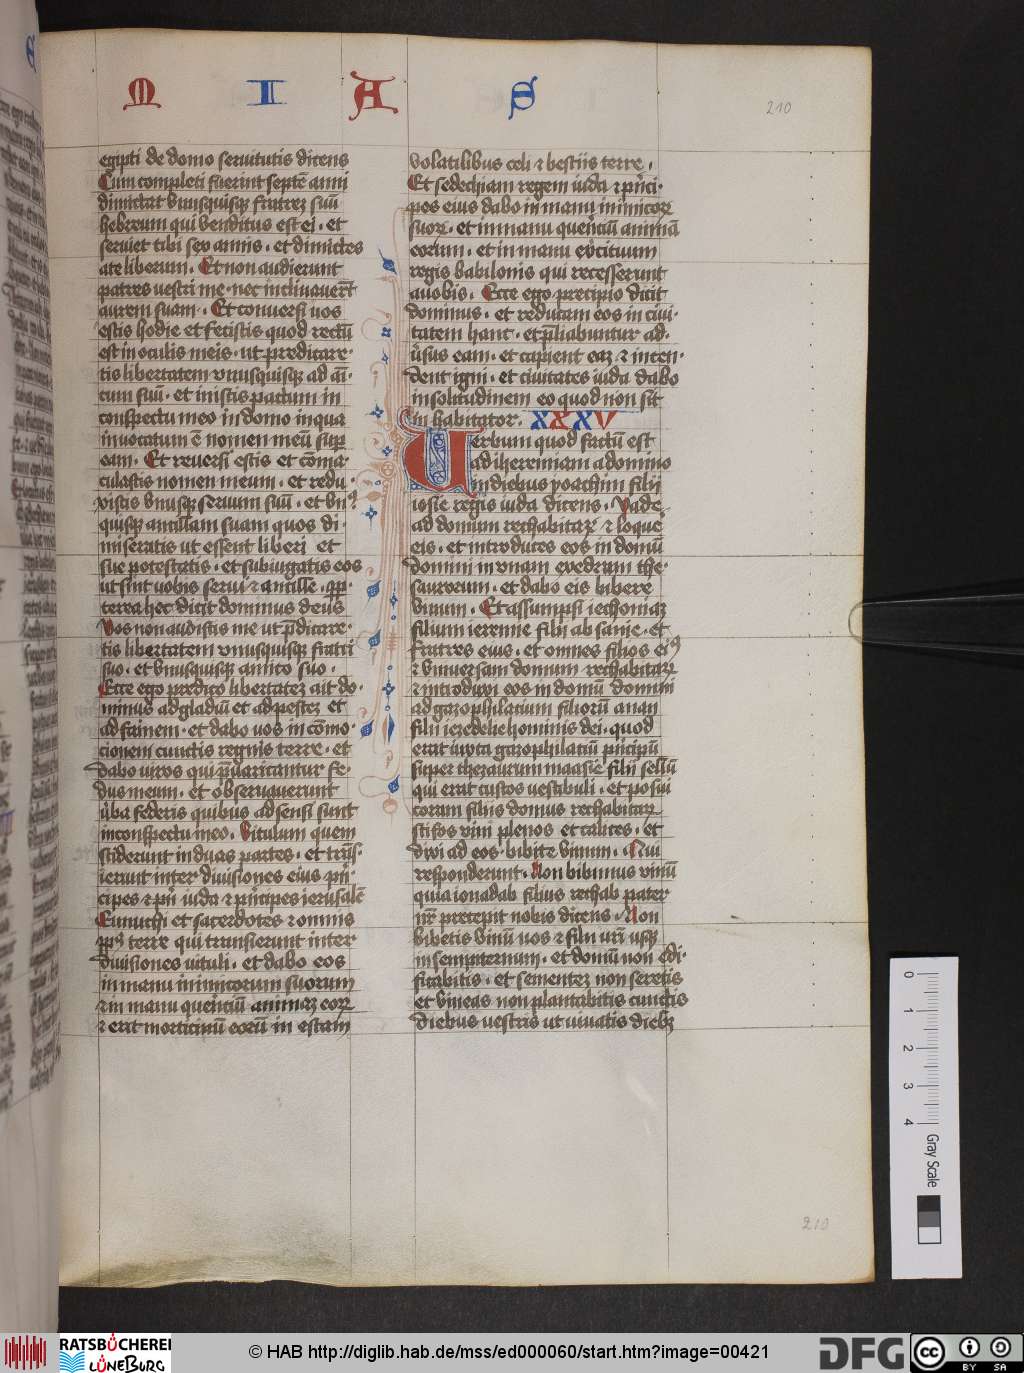 M I A S
210
egipti de domo seruitutis dicens
Cum completi fuerint septē anni
dimittat vnusquisqȝ fratreȝ suū
hebreum qui venditus est ei · et
seruiet tibi sex annis · et dimittes
a te liberum · Et non audierunt
patres vestri me · nec inclinauerūt
aurem suam · Et conuersi uos
estis hodie et fecistis quod rectū
est in oculis meis · ut predicare-
tis libertatem vnusquisqȝ ad ami-
cum suū · et inistis pactum in
conspectu meo in domo in qua
inuocatum ē nomen meū sup
eam · Et reuersi estis et cōma-
culastis nomen meum · et redu-
xistis vnusqȝ seruum suū · et vn9
quisqȝ ancillam suam quos di-
miseratis ut essent liberi et
sue potestatis · et subiugastis eos
ut sint uobis serui et ancille · ꝓp
terea hec dicit dominus deus
Vos non audistis me ut p̄dicare-
tis libertatem vnusquisqȝ fratri
suo · et vnusquisqȝ amico suo ·
Ecce ego predico libertateȝ ait do-
minus ad gladiū et ad pesteȝ et
ad famem · et dabo uos in cōmo-
cionem cunctis regnis terre · et
dabo viros qui p̄uaricantur fe-
dus meum · et obseruauerunt
ūba federis quibus adsensi sunt
in conspectu meo · Vitulum quem
sciderunt in duas partes · et trās-
ierunt inter diuisiones eius prī-
cipes et prī iuda et prīcipes ierusalē
Eunuchi et sacerdotes et omnis
ꝓp9 terre qui transierunt inter
diuisiones vituli · et dabo eos
in manu inimicorum suorum
et in manu querēciū animaȝ eoꝝ
et erit morticinū eorū in escam
volatilibus celi et bestiis terre ·
Et sedechiam regem iuda et prīci-
pes eius dabo in manu inimicoꝝ
suoꝝ · et in manu querēciū animā
eorum · et in manu exercituum
regis babilonis qui recesserunt
a uobis · Ecce ego precipio dicit
dominus · et reducam eos in ciui-
tatem hanc · et p̄liabuntur ad-
ūsus eam · et capient eaȝ et incen-
dent igni · et ciuitates iuda dabo
in solitudinem eo quod non sit
in habitator · XXXV
Uerbum quod factū est
ad iheremiam a domino
in diebus yoachim filij
iosie regis iuda dicens · Vade
ad domum rechabitaꝝ et loque
eis · et introduces eos in domū
domini in vnam exedram the-
saurorum · et dabo eis bibere
vinum · Et assumpsi iechoniaȝ
filium ieremie filii absanie · et
fratres eius · et omnes filios ei9
et vniuersam domum rechabitaꝝ
et introduxi eos in domū domini
ad gazophilacium filiorū anan
filii iezedelie hominis dei · quod
erat iuxta gazophilaciū prīcipū
super thezaurum maasie filii sellū
qui erat custos vestibuli · et posui
coram filiis domus rechabitaꝝ
scifos vini plenos et calices · et
dixi ad eos · bibite vinum · Qui
responderunt · Non bibimus vinū
quia ionadab filius rechab pater
nr̄ precepit nobis dicens · Non
bibetis vinū uos et filii vr̄i usqȝ
in sempiternum · et domū non edi-
ficabitis · et sementeȝ non seretis
et vineas non plantabitis cunctis
diebus vestris ut uiuatis diebȝ
210
0 1 2 3 4
Gray Scale
RATSBÜCHEREI LÜNEBURG
© HAB http://diglib.hab.de/mss/ed000060/start.htm?image=00421
DFG
cc BY SA